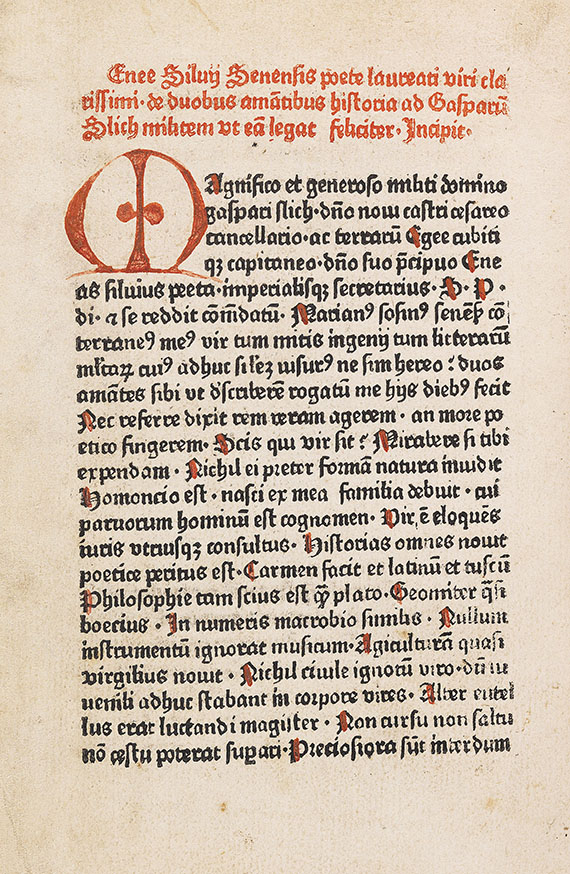 Enee Siluij Senensis poete laureati viri cla
rissimi · de duobus amãtibus historia ad Gasparũ
Slich militem vt eã legat feliciter · Incipit ·
MAgnifico et generoso militi domino
gaspari slich · dño noui castri cesareo
cancellario · ac terrarũ Egee cubiti
qꝫ capitaneo · dño suo p̃cipuo Ene
as siluius poeta · imperialisqꝫ secretarius · S · P ·
di · ⁊ se reddit cõmẽdatũ · Marianꝰ sosinꝰ senẽsꝭ cõ
terraneꝰ meꝰ vir tum mitis ingenij tum litterarũ
ml̃tarꝝ cuiꝰ adhuc sil̃eꝫ uisurꝰ ne sim hereo : duos
amãtes sibi vt d̃scriberẽ rogatũ me hijs diebꝰ fecit
Nec referre dixit rem veram agerem · an more po
etico fingerem · Scis qui vir sit ? Mirabere si tibi
expendam · Nichil ei preter formã natura inuidit
Homoncio est · nasci ex mea familia debuit · cui
paruorum hominũ est cognomen · Vir ẽ eloquẽs
iuris vtriusqꝫ consultus · Historias omnes nouit
poetice peritus est · Carmen facit et latinũ et tuscũ
Philosophie tam scius est qꝫ̃ plato · Geometer q̃si
boecius · In numeris macrobio similis · Nullum
instrumentũ ignorat musicum · Agiculturã quasi
virgilius nouit · Nichil ciuile ignotũ viro · dũ iu
uenili adhuc stabant in corpore vires · Alter entel
lus erat luctandi magister · Non cursu non saltu
nõ cęstu poterat suꝑari · Preciosiora sũt interdum